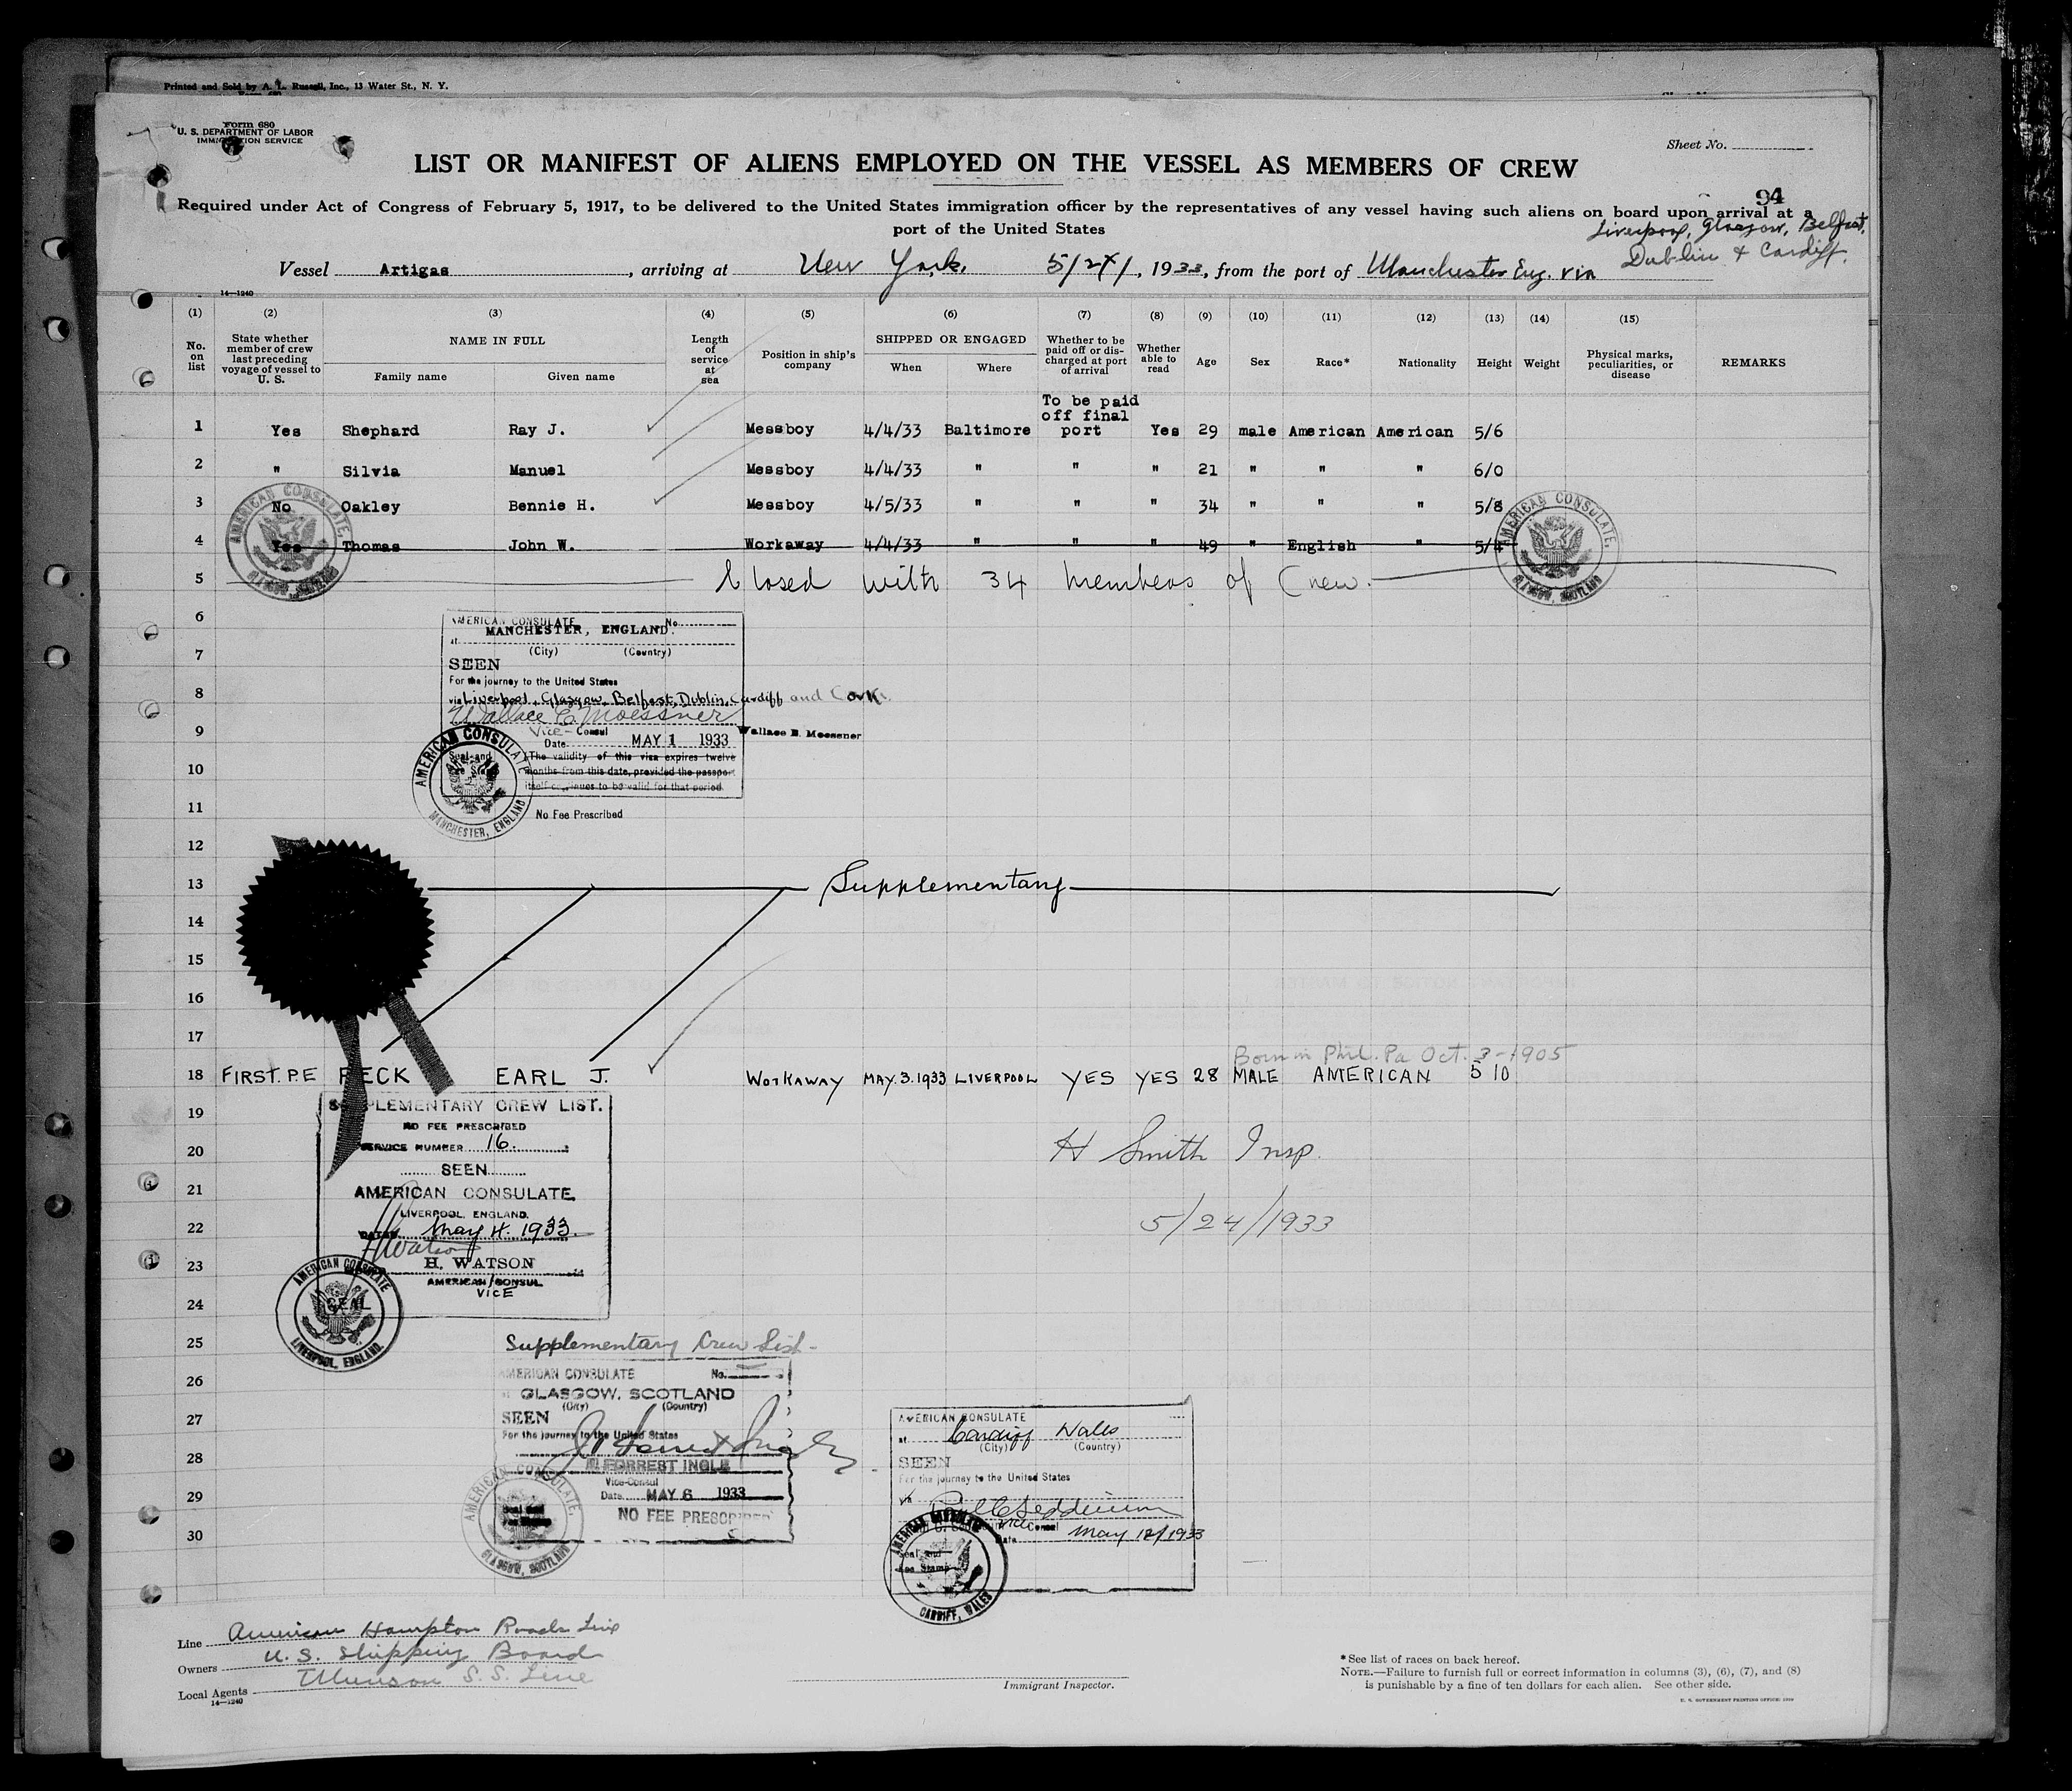 Printed and Sold by A. L. Russell, Inc., 13 Water St., N. Y.
Form 680
U. S. DEPARTMENT OF LABOR
IMMIGRATION SERVICE
Sheet No.
LIST OR MANIFEST OF ALIENS EMPLOYED ON THE VESSEL AS MEMBERS OF CREW
94
Required under Act of Congress of February 5, 1917, to be delivered to the United States immigration officer by the representatives of any vessel having such aliens on board upon arrival at a
port of the United States
Liverpool, Glasgow, Belfast,
Dublin & Cardiff.
Vessel Artigas, arriving at New York, 5/24/, 1933, from the port of Manchester Eng. via
14—1240
(1) (2) (3) (4) (5) (6) (7) (8) (9) (10) (11) (12) (13) (14) (15)
No. on list
State whether member of crew last preceding voyage of vessel to U. S.
NAME IN FULL
Family name Given name
Length of service at sea
Position in ship's company
SHIPPED OR ENGAGED
When Where
Whether to be paid off or discharged at port of arrival
Whether able to read
Age Sex Race* Nationality Height Weight
Physical marks, peculiarities, or disease
REMARKS
To be paid
off final
1 Yes Shephard Ray J. Messboy 4/4/33 Baltimore port Yes 29 male American American 5/6
2 " Silvia Manuel Messboy 4/4/33 " " " 21 " " " 6/0
3 No Oakley Bennie H. Messboy 4/5/33 " " " 34 " " " 5/8
4 Yes Thomas John W. Workaway 4/4/33 " " " 49 " English " 5/4
5 Closed with 34 members of Crew.
AMERICAN CONSULATE, GLASGOW, SCOTLAND
AMERICAN CONSULATE, GLASGOW, SCOTLAND
6
AMERICAN CONSULATE No.
MANCHESTER, ENGLAND.
at
(City) (Country)
7
SEEN
For the journey to the United States
8
via Liverpool, Glasgow, Belfast, Dublin, Cardiff and Cork.
Wallace E Moessner
9
Vice-Consul Wallace E. Moessner
Date MAY 1 1933
The validity of this visa expires twelve
10
months from this date, provided the passport
itself continues to be valid for that period.
11
No Fee Prescribed
AMERICAN CONSULATE MANCHESTER, ENGLAND
12
13 Supplementary
14
15
16
17
Born in Phil. Pa Oct. 3-1905
18 FIRST. P.E PECK EARL J. WORKAWAY MAY. 3. 1933 LIVERPOOL YES YES 28 MALE AMERICAN 5 10
SUPPLEMENTARY CREW LIST.
19
NO FEE PRESCRIBED
SERVICE NUMBER 16.
20 H Smith Insp.
SEEN
21
AMERICAN CONSULATE.
LIVERPOOL, ENGLAND.
22 5/24/1933
DATE May 4. 1933.
H Watson
23
H. WATSON
AMERICAN CONSUL
VICE
24
AMERICAN CONSULATE SEAL LIVERPOOL, ENGLAND.
25
Supplementary Crew List-
26
AMERICAN CONSULATE No.
GLASGOW, SCOTLAND
(City) (Country)
27
SEEN
For the journey to the United States
28
FORREST INGLE
Vice-Consul
29
Date MAY 6 1933
NO FEE PRESCRIBED
30
AMERICAN CONSULATE, GLASGOW, SCOTLAND
AMERICAN CONSULATE
at Cardiff Wales
(City) (Country)
SEEN
For the journey to the United States
Vice Consul
Date May 12/1933
Seal and
Fee Stamp
AMERICAN CONSULATE CARDIFF, WALES
Line American Hampton Roads Line
Owners U. S. Shipping Board
Local Agents Munson S. S. Line
14—1240
Immigrant Inspector.
*See list of races on back hereof.
NOTE.—Failure to furnish full or correct information in columns (3), (6), (7), and (8)
is punishable by a fine of ten dollars for each alien. See other side.